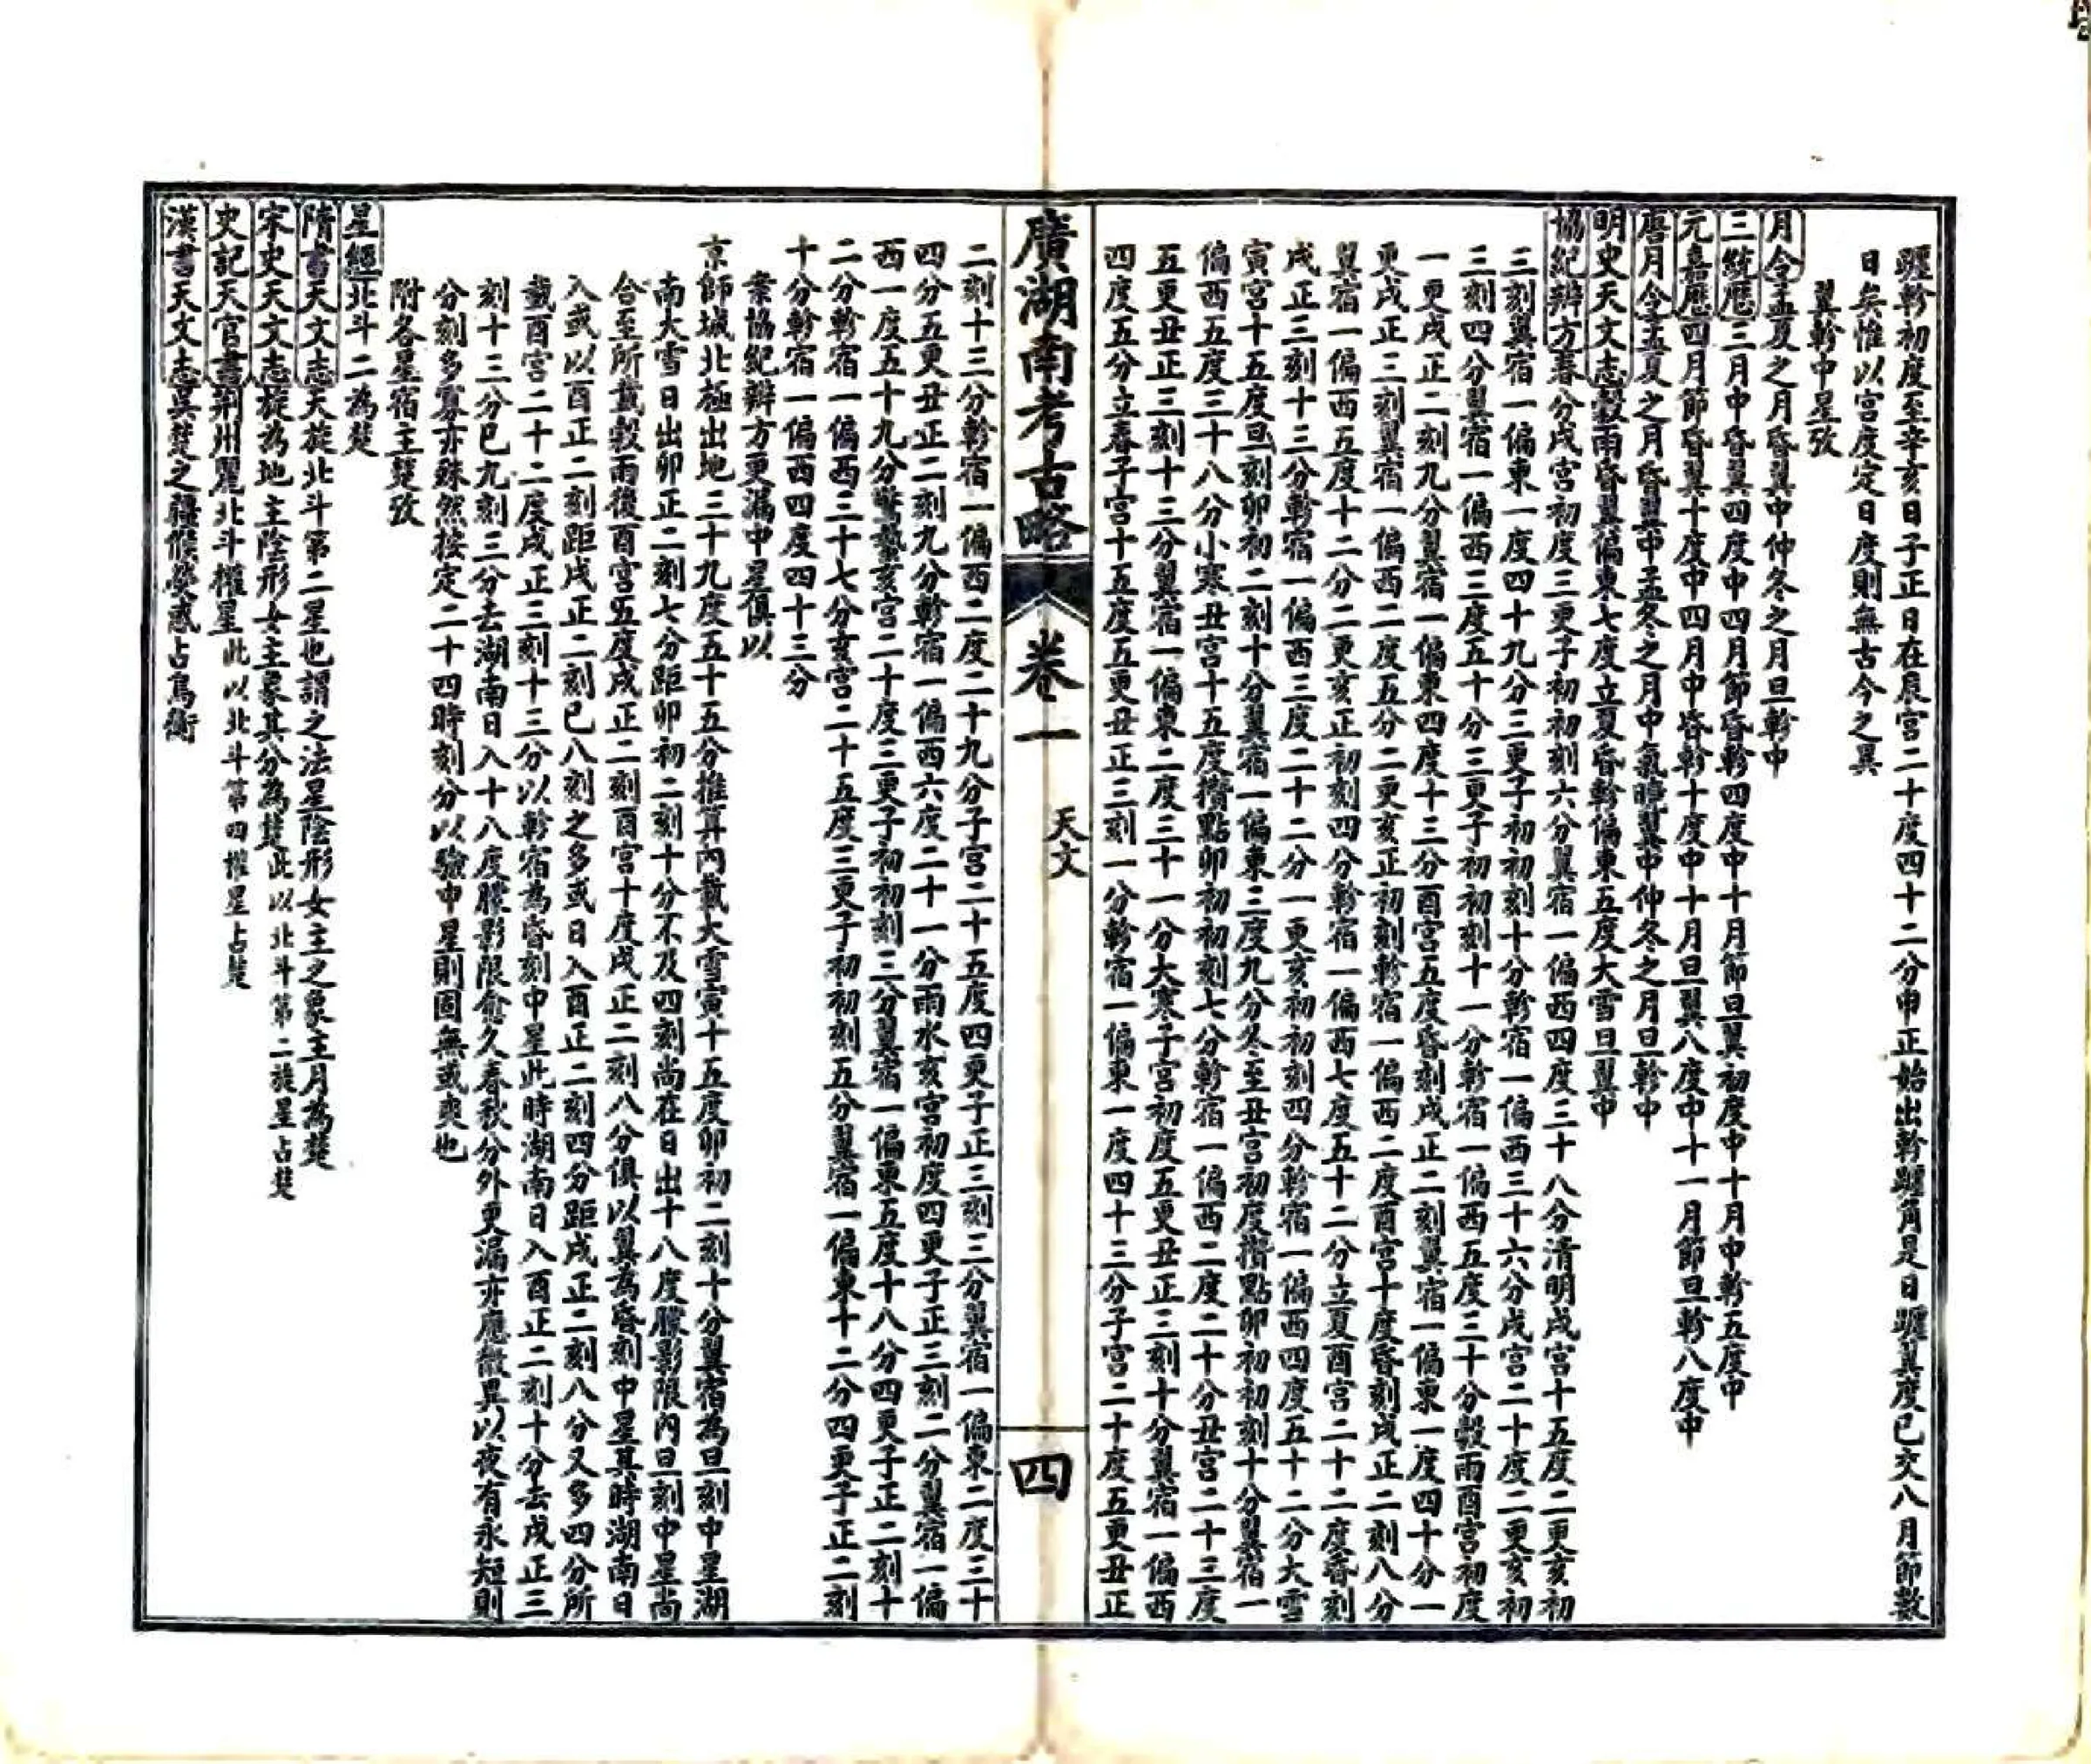 躔軫初度至辛亥日子正日在辰宮二十度四十二分申正始出軫躔角是日躔翼度已交八月節數
日矣惟以宮度定日度則無古今之異
翼軫中星攷
月令孟夏之月昏翼中仲冬之月旦軫中
三統歷三月中昏翼四度中四月節昏軫四度中十月節旦翼初度中十月中軫五度中
元嘉歷四月節昏翼十度中四月中昏軫十度中十月旦翼八度中十一月節旦軫八度中
唐月令孟夏之月昏翼中孟冬之月中氣曉翼中仲冬之月旦軫中
明史天文志穀雨昏翼偏東七度立夏昏軫偏東五度大雪旦翼中
協紀辨方春分戌宮初度三更子初初刻六分翼宿一偏西四度三十八分清明戌宮十五度二更亥初
三刻翼宿一偏東一度四十九分三更子初初刻十分軫宿一偏西三十六分戌宮二十度二更亥初
三刻四分翼宿一偏西三度五十分三更子初初刻十一分軫宿一偏西五度三十分穀雨酉宮初度
一更戌正二刻九分翼宿一偏東四度十三分酉宮五度昏刻戌正二刻翼宿一偏東一度四十分一
更戌正三刻翼宿一偏西二度五分二更亥正初刻軫宿一偏西二度酉宮十度昏刻戌正二刻八分
翼宿一偏西五度十二分二更亥正初刻四分軫宿一偏西七度五十二分立夏酉宮二十二度昏刻
戌正三刻十三分軫宿一偏西三度二十二分一更亥初初刻四分軫宿一偏西四度五十二分大雪
寅宮十五度旦刻卯初二刻十分翼宿一偏東三度九分冬至丑宮初度攢點卯初初刻十分翼宿一
偏西五度三十八分小寒丑宮十五度攢點卯初初刻七分軫宿一偏西二度二十分丑宮二十三度
五更丑正三刻十三分翼宿一偏東二度三十一分大寒子宮初度五更丑正三刻十分翼宿一偏西
四度五分立春子宮十五度五更丑正三刻一分軫宿一偏東一度四十三分子宮二十度五更丑正
廣湖南考古略
卷一
天文
四
二刻十三分軫宿一偏西二度二十九分子宮二十五度四更子正三刻三分翼宿一偏東二度三十
四分五更丑正二刻九分軫宿一偏西六度二十一分雨水亥宮初度四更子正三刻二分翼宿一偏
西一度五十九分驚蟄亥宮二十度三更子初初刻三分翼宿一偏東五度十八分四更子正二刻十
二分軫宿一偏西三十七分亥宮二十五度三更子初初刻五分翼宿一偏東十二分四更子正二刻
十分軫宿一偏西四度四十三分
案協紀辨方更漏中星俱以
京師城北極出地三十九度五十五分推算內載大雪寅十五度卯初二刻十分翼宿為旦刻中星湖
南大雪日出卯正二刻七分距卯初二刻十分不及四刻尚在日出十八度朦影限內旦刻中星尚
合至所載穀雨後酉宮五度戌正二刻酉宮十度戌正二刻八分俱以翼為昏刻中星其時湖南日
入或以酉正二刻距戌正二刻已八刻之多或日入酉正二刻四分距戌正二刻八分又多四分所
載酉宮二十二度戌正三刻十三分以軫宿為昏刻中星此時湖南日入酉正二刻十分去戌正三
刻十三分已九刻三分去湖南日入十八度朦影限愈久春秋分外更漏亦應微異以夜有永短則
分刻多寡亦殊然按定二十四時刻分以驗中星則固無或爽也
附各星宿主楚攷
星經北斗二為楚
隋書天文志天旋北斗第二星也謂之法星陰形女主之象主月為楚
宋史天文志旋為地主陰形女主象其分為楚此以北斗第二旋星占楚
史記天官書荊州屬北斗權星此以北斗第四權星占楚
漢書天文志吳楚之疆候熒惑占鳥衡